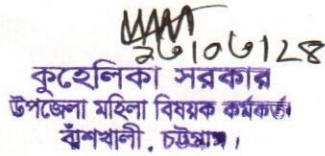 ২৩/০৩/২৪
কুহেলিকা সরকার
উপজেলা মহিলা বিষয়ক কর্মকর্তা
বাঁশখালী, চট্টগ্রাম।